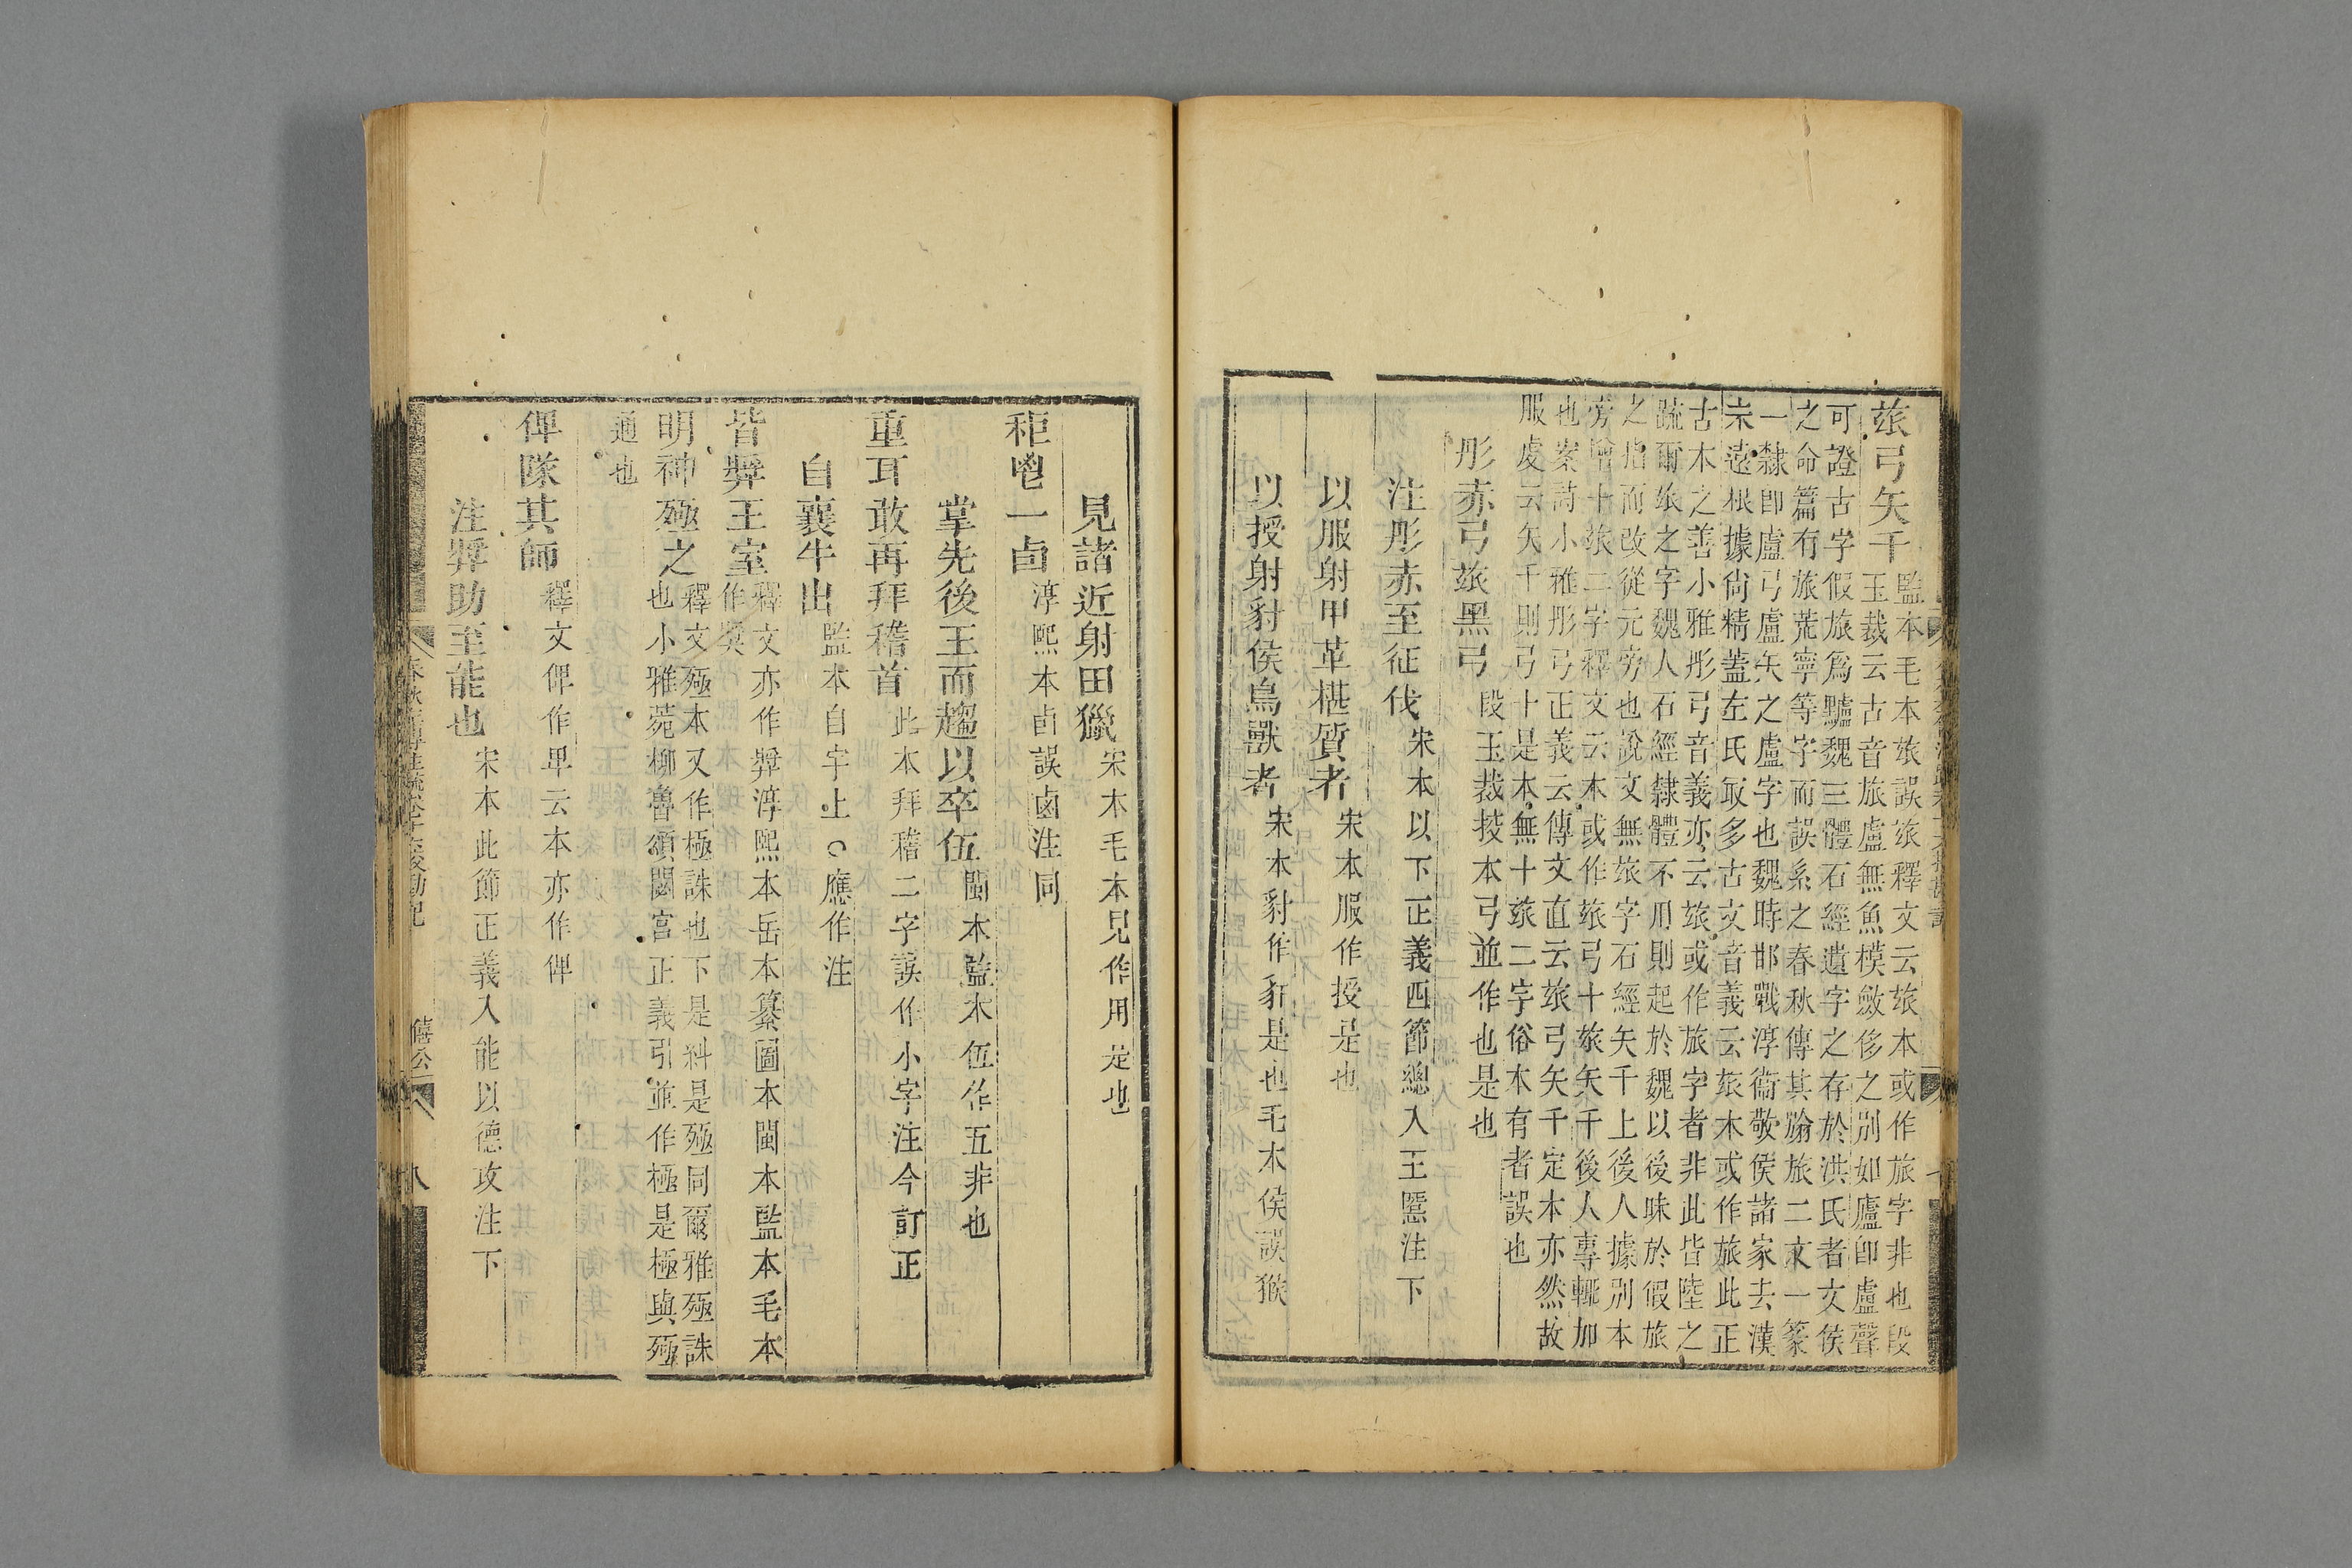 玈弓矢千監本毛本玈誤玈釋文云玈本或作旅字非也段
玉裁云古音旅盧無魚模斂侈之別如廬卽盧聲
可證古字假旅爲黸魏三體石經遺字之存於洪氏者文侯
之命篇有旅荒寧等字而誤系之春秋傳其旅二文一篆
一隸卽盧弓盧矢之盧字也魏時邯戰淳衞敬侯諸家去漢
未遠根據尙精蓋左氏取多古文音義云玈本或作旅此正
古本之善小雅彤弓音義亦云玈或作旅字者非此皆陸之
疏爾玈之字魏人石經隸體不用則起於魏以後昧於假旅
之指而改從元旁也說文無玈字石經矢千上後人據別本
旁增十玈二字釋文云本或作玈弓十玈矢千後人專輒加
也案詩小雅彤弓正義云傳文直云玈弓矢千定本亦然故
服虔云矢千則弓十是本無十玈二字俗本有者誤也
彤赤弓玈黑弓段玉裁挍本弓並作也是也
注彤赤至征伐宋本以下正義四節總入王慝注下
以服射甲革椹質者宋本服作授是也
以授射豺侯鳥獸者宋本豺作豻是也毛本侯誤猴
見諸近射田獵宋本毛本見作用是也
秬鬯一卣淳熙本卣誤鹵注同
掌先後王而趨以卒伍閩本監本伍作五非也
重耳敢再拜稽首此本拜稽二字誤作小字注今訂正
自襄牛出監本自字上○應作注
皆奬王室釋文亦作奬淳熙本岳本纂圖本閩本監本毛本
作奨
明神殛之釋文殛本又作極誅也下是糾是殛同爾雅殛誅
也小雅菀柳魯頌閟宮正義引並作極是極與殛
通也
俾隊其師釋文俾作卑云本亦作俾
注奬助至能也宋本此節正義入能以德攻注下
僖公
八